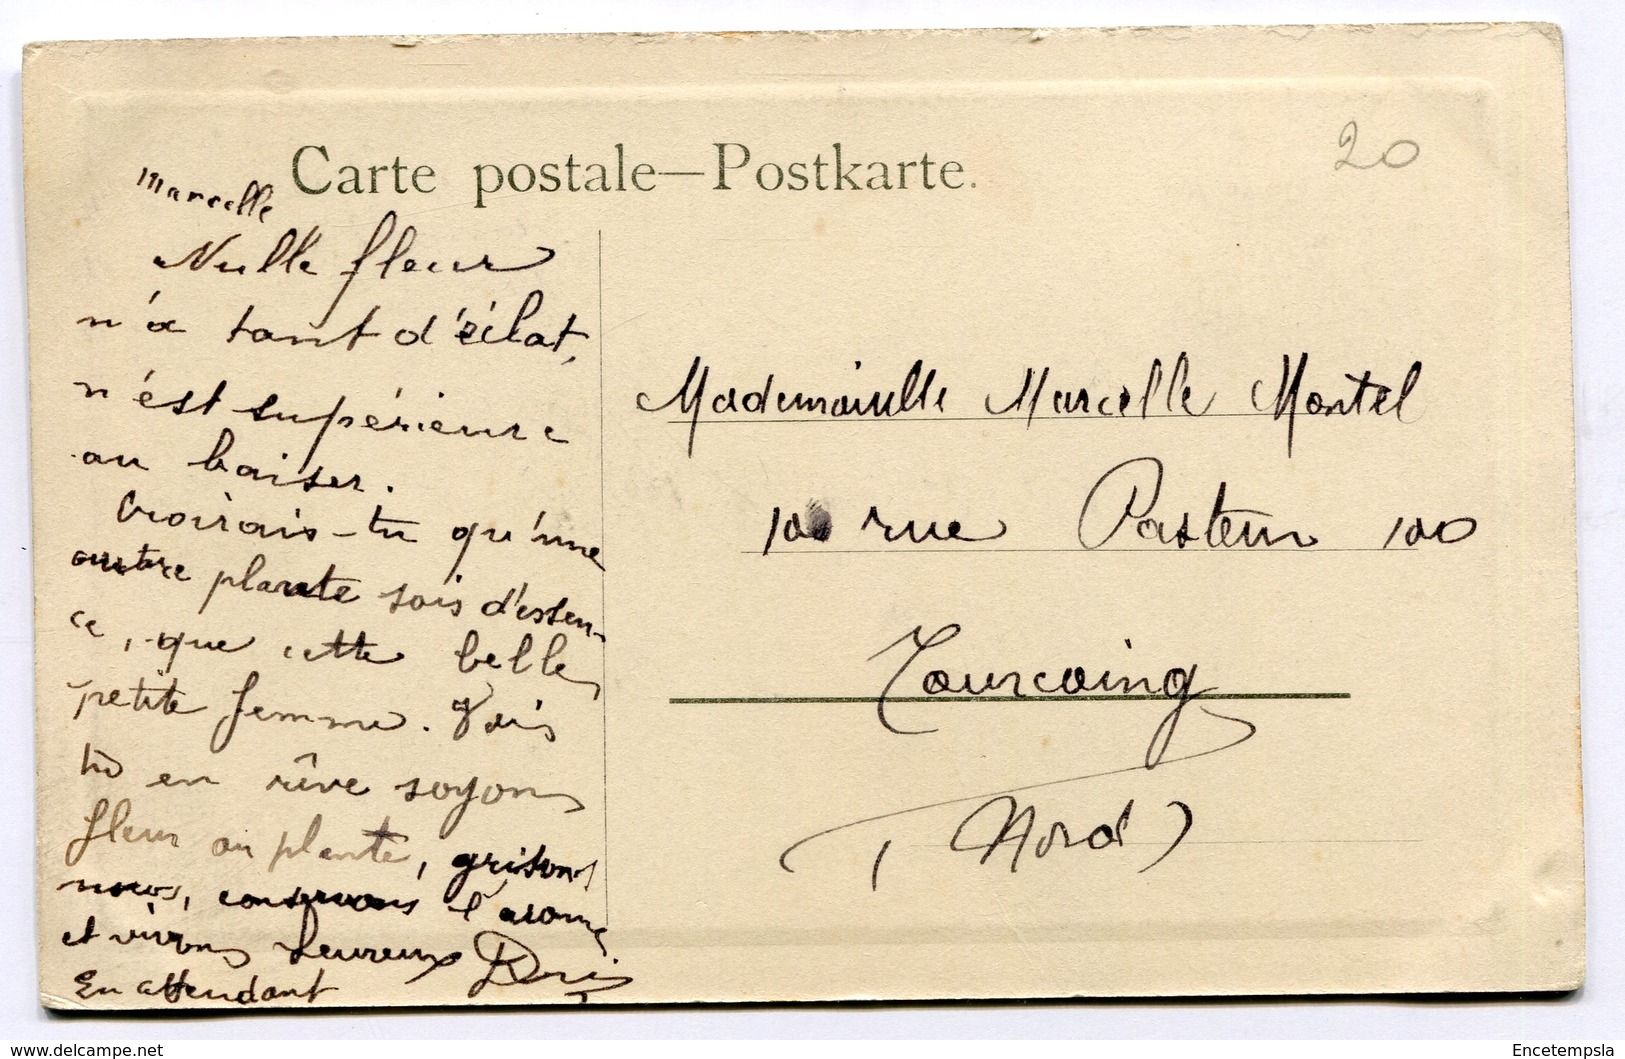 Carte postale—Postkarte.
20
Marcelle
Nulle fleur
n'a tant d'éclat,
n'est supérieure
au baiser.
Croirais-tu qu'une
autre plante sois d'essen-
ce, que cette belle
petite femme. Vois
tu en rêve soyons
fleur ou plante, grisons
nous, conservons l'arome
et vivons heureux
En attendant
Mademoiselle Marcelle Montel
100 rue Pasteur 100
Tourcoing
(Nord)
delcampe.net
Encetempsla